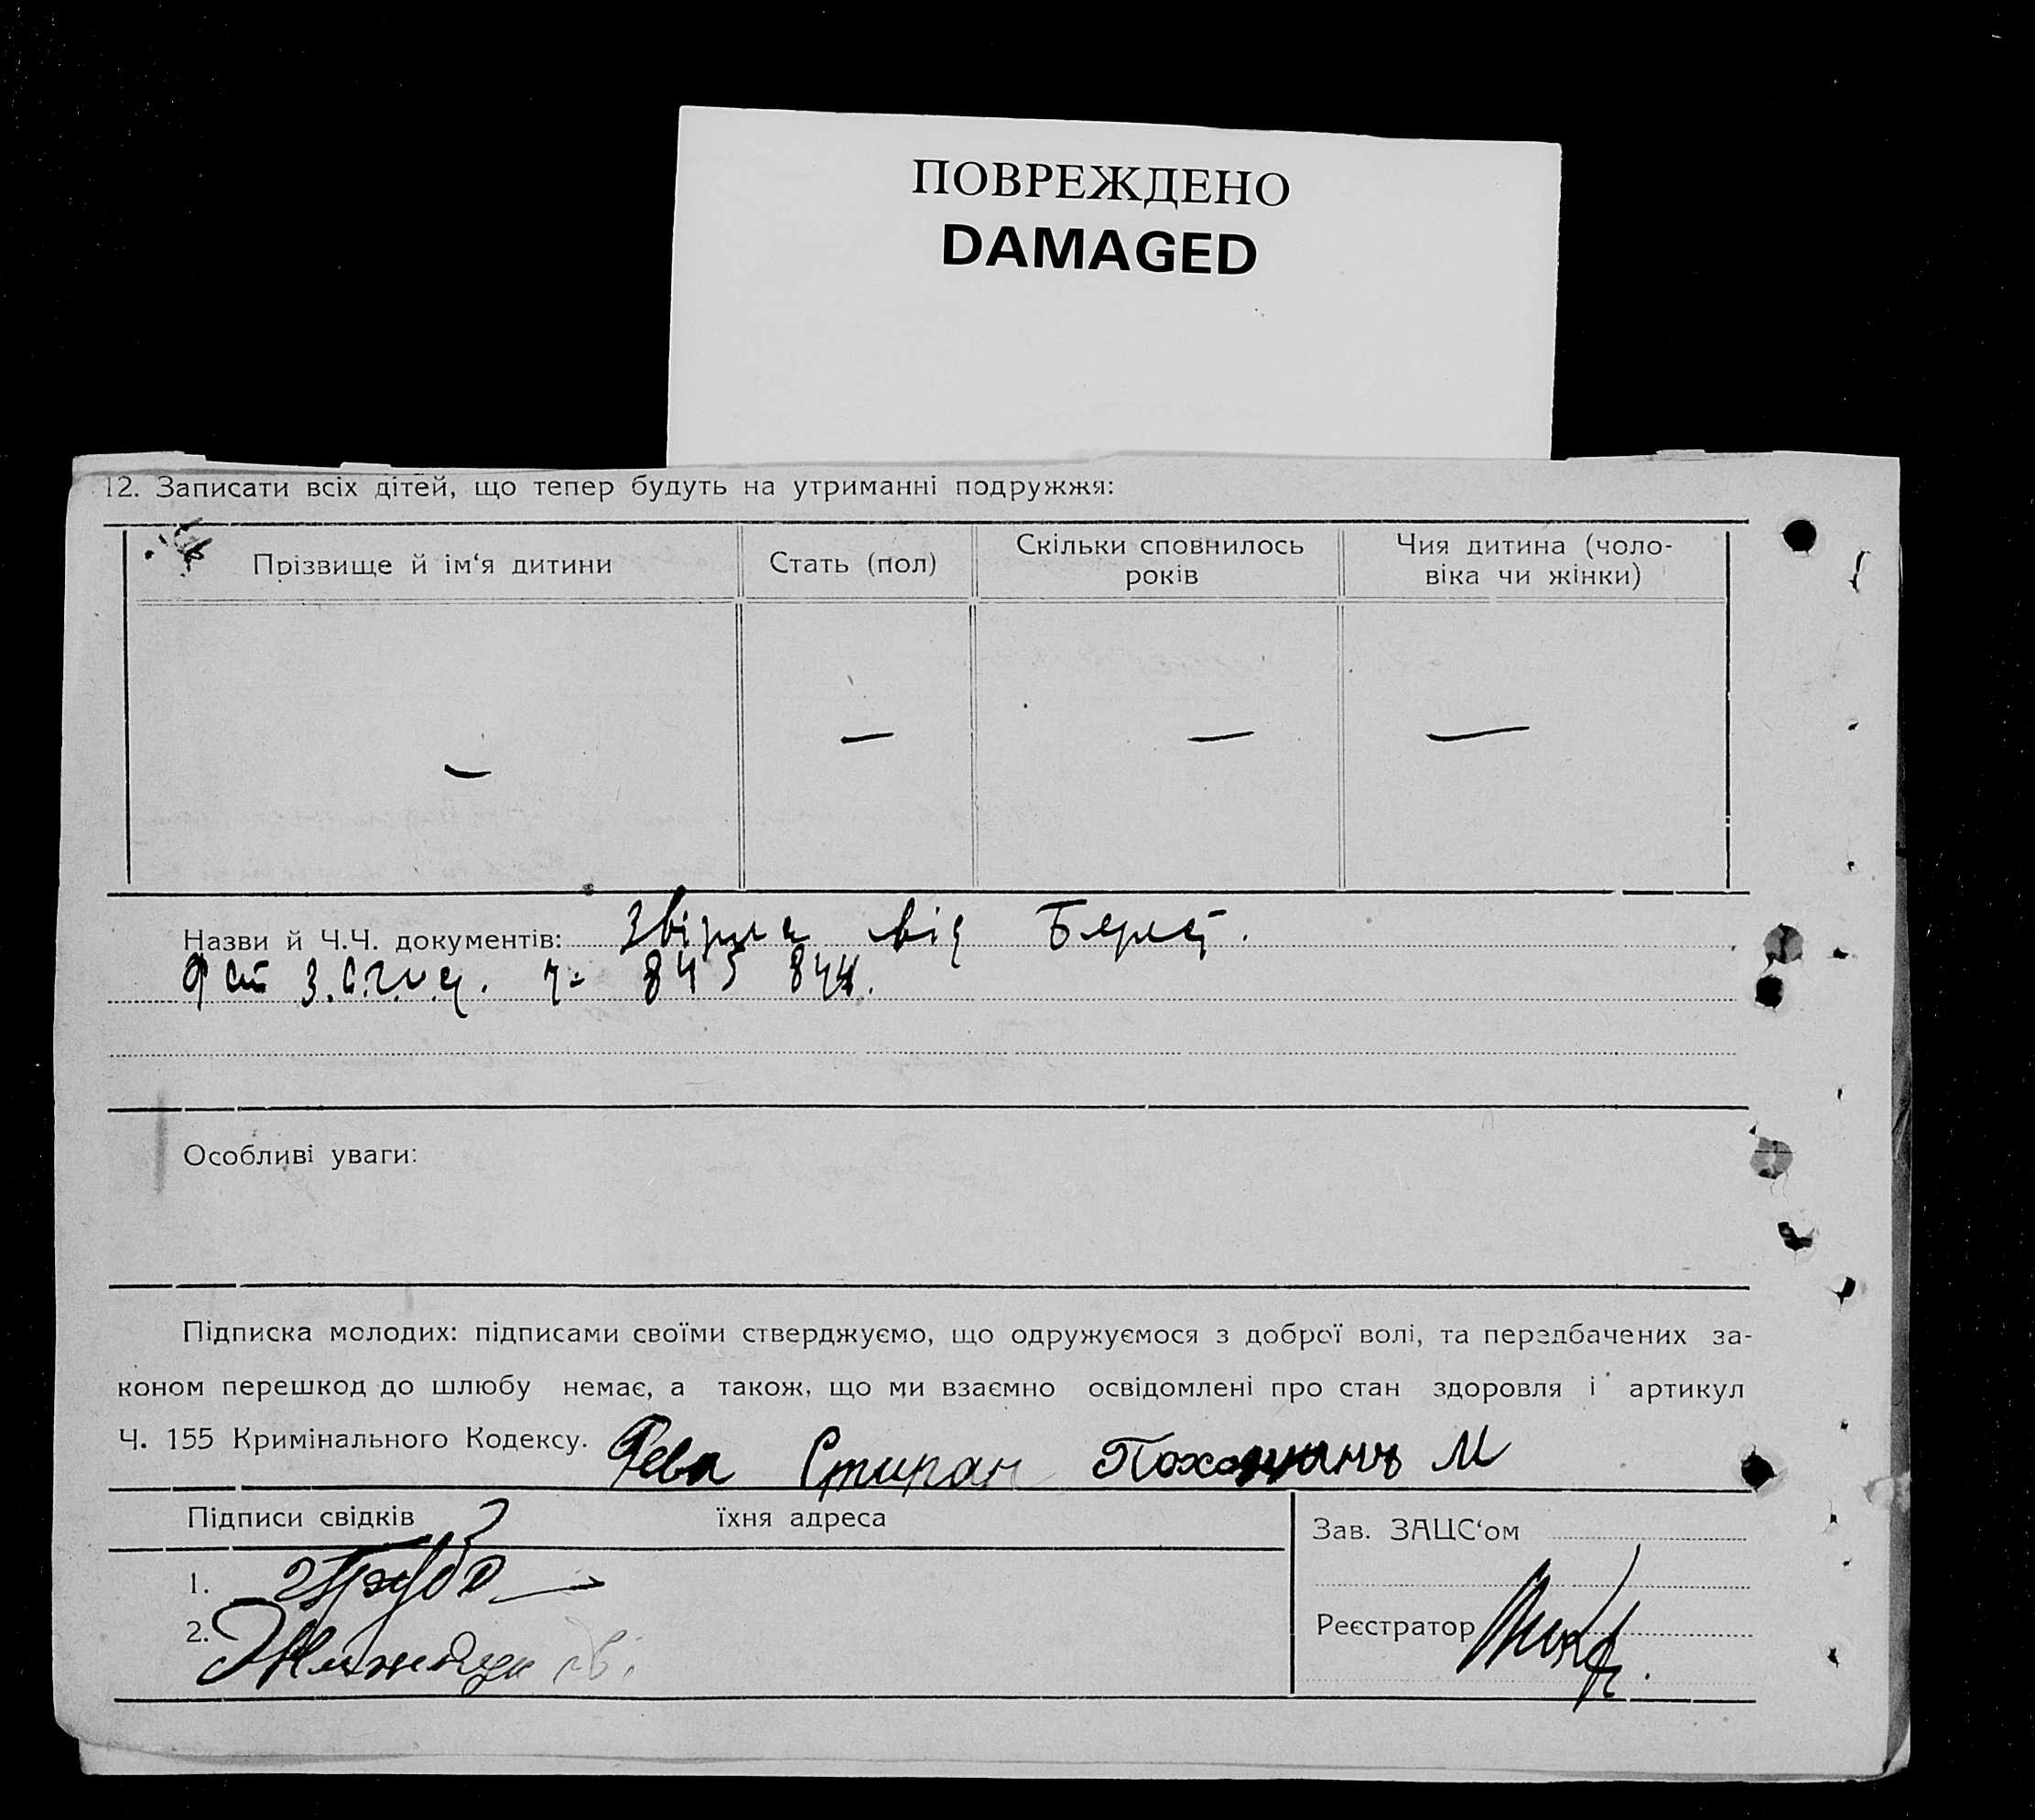 ПОВРЕЖДЕНО
DAMAGED
12. Записати всіх дітей, що тепер будуть на утриманні подружжя:
Прізвище й ім‘я дитини
Стать (пол)
Скільки сповнилось
років
Чия дитина (чоло-
віка чи жінки)
— — — —
Назви й Ч.Ч. документів: від
845 844.
Особливі уваги:
Підписка молодих: підписами своїми стверджуємо, що одружуємося з доброї волі, та передбачених за-
коном перешкод до шлюбу немає, а також, що ми взаємно освідомлені про стан здоровля і артикул
Ч. 155 Кримінального Кодексу. Рева М
Підписи свідків їхня адреса
Зав. ЗАЦС‘ом
1.
2.
Реєстратор